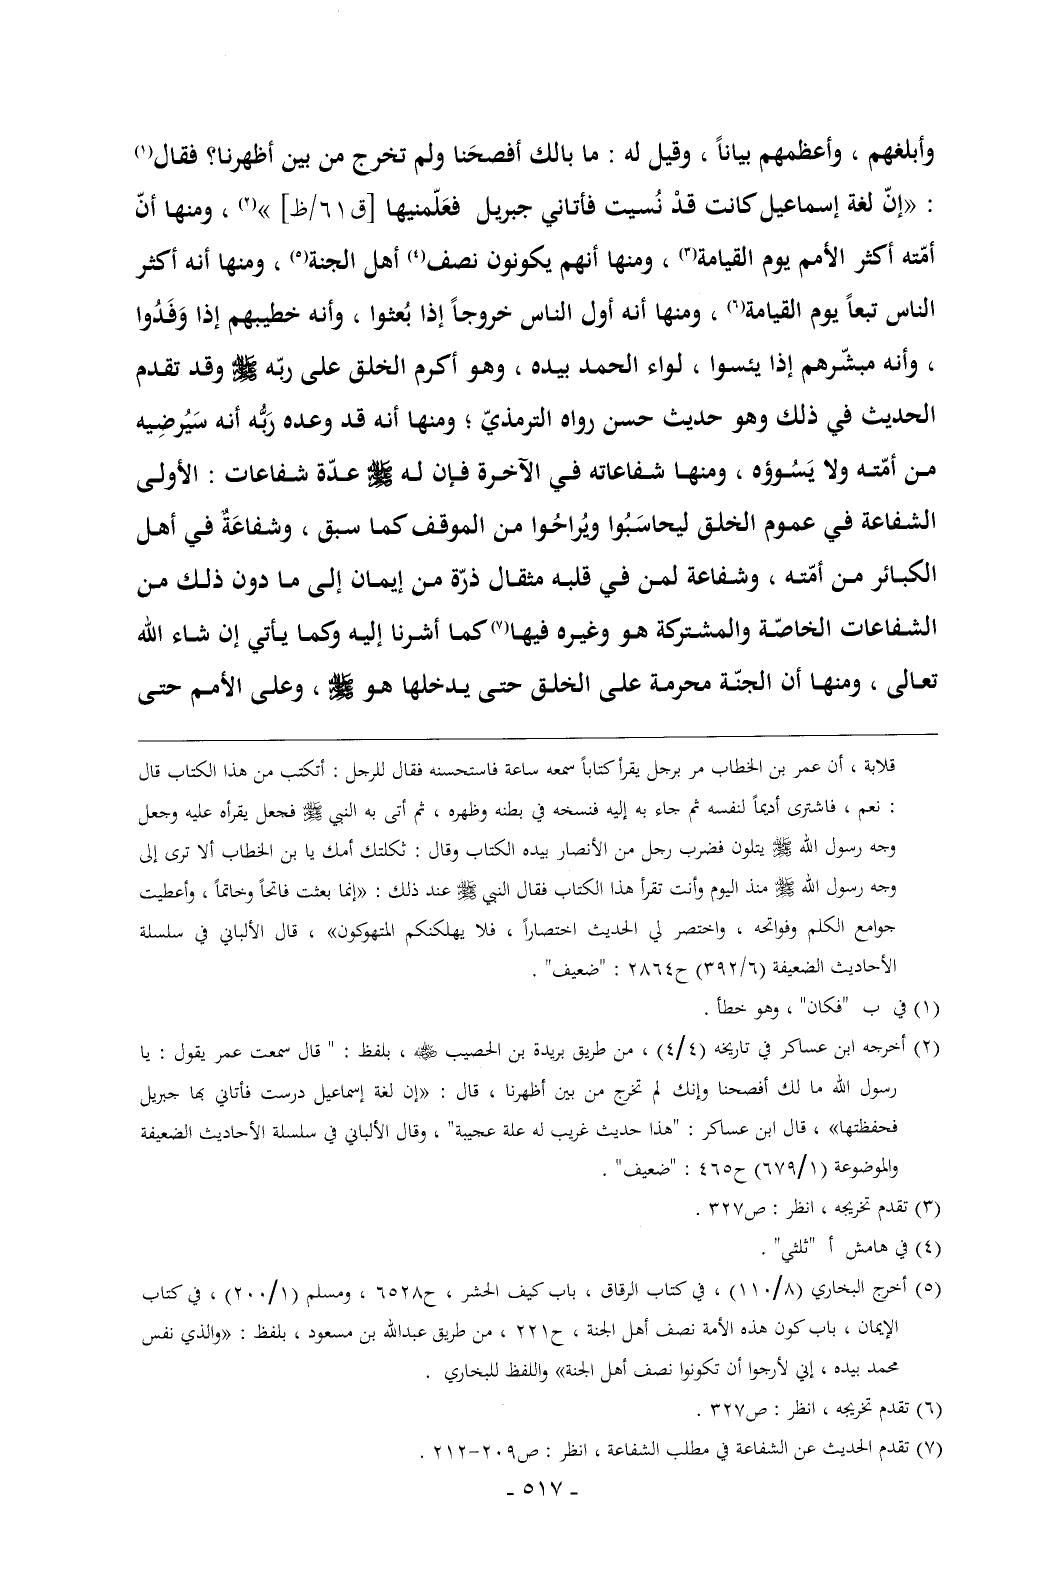 وأبلغهم ، وأعظمهم بياناً ، وقيل له : ما بالك أفصحَنا ولم تخرج من بين أظهرنا؟ فقال(١)
: «إنّ لغة إسماعيل كانت قدْ نُسيت فأتاني جبريل فعَلّمنيها [ق٦١/ظ] »(٢) ، ومنها أنّ
أمّته أكثر الأمم يوم القيامة(٣) ، ومنها أنهم يكونون نصف(٤) أهل الجنة(٥) ، ومنها أنه أكثر
الناس تبعاً يوم القيامة(٦) ، ومنها أنه أول الناس خروجاً إذا بُعثوا ، وأنه خطيبهم إذا وَفَدُوا
، وأنه مبشّرهم إذا يئسوا ، لواء الحمد بيده ، وهو أكرم الخلق على ربّه ﷺ وقد تقدم
الحديث في ذلك وهو حديث حسن رواه الترمذيّ ؛ ومنها أنه قد وعده رَبُّه أنه سَيُرضِيه
من أمّته ولا يَسُوؤه ، ومنها شفاعاته في الآخرة فإن له ﷺ عدّة شفاعات : الأولى
الشفاعة في عموم الخلق ليحاسَبُوا ويُراحُوا من الموقف كما سبق ، وشفاعَةٌ في أهل
الكبائر من أمّته ، وشفاعة لمن في قلبه مثقال ذرّة من إيمان إلى ما دون ذلك من
الشفاعات الخاصّة والمشتركة هو وغيره فيها(٧) كما أشرنا إليه وكما يأتي إن شاء الله
تعالى ، ومنها أن الجنّة محرمة على الخلق حتى يدخلها هو ﷺ ، وعلى الأمم حتى
قلابة ، أن عمر بن الخطاب مر برجل يقرأ كتاباً سمعه ساعة فاستحسنه فقال للرجل : أتكتب من هذا الكتاب قال
: نعم ، فاشترى أديماً لنفسه ثم جاء به إليه فنسخه في بطنه وظهره ، ثم أتى به النبي ﷺ فجعل يقرأه عليه وجعل
وجه رسول الله ﷺ يتلون فضرب رجل من الأنصار بيده الكتاب وقال : ثكلتك أمك يا بن الخطاب ألا ترى إلى
وجه رسول الله ﷺ منذ اليوم وأنت تقرأ هذا الكتاب فقال النبي ﷺ عند ذلك : «إنما بعثت فاتحاً وخاتماً ، وأعطيت
جوامع الكلم وفواتحه ، واختصر لي الحديث اختصاراً ، فلا يهلكنكم المتهوكون» ، قال الألباني في سلسلة
الأحاديث الضعيفة (٣٩٢/٦) ح٢٨٦٤ : "ضعيف" .
(١) في ب "فكان" ، وهو خطأ .
(٢) أخرجه ابن عساكر في تاريخه (٤/٤) ، من طريق بريدة بن الحصيب ﷺ ، بلفظ : " قال سمعت عمر يقول : يا
رسول الله ما لك أفصحنا وإنك لم تخرج من بين أظهرنا ، قال : «إن لغة إسماعيل درست فأتاني بها جبريل
فحفظتها» ، قال ابن عساكر : "هذا حديث غريب له علة عجيبة" ، وقال الألباني في سلسلة الأحاديث الضعيفة
والموضوعة (٦٧٩/١) ح٤٦٥ : "ضعيف" .
(٣) تقدم تخريجه ، انظر : ص٣٢٧ .
(٤) في هامش أ "ثلثي" .
(٥) أخرج البخاري (١١٠/٨) ، في كتاب الرقاق ، باب كيف الحشر ، ح٦٥٢٨ ، ومسلم (٢٠٠/١) ، في كتاب
الإيمان ، باب كون هذه الأمة نصف أهل الجنة ، ح٢٢١ ، من طريق عبدالله بن مسعود ، بلفظ : «والذي نفس
محمد بيده ، إني لأرجوا أن تكونوا نصف أهل الجنة» واللفظ للبخاري .
(٦) تقدم تخريجه ، انظر : ص٣٢٧ .
(٧) تقدم الحديث عن الشفاعة في مطلب الشفاعة ، انظر : ص٢٠٩-٢١٢ .
- ٥١٧ -